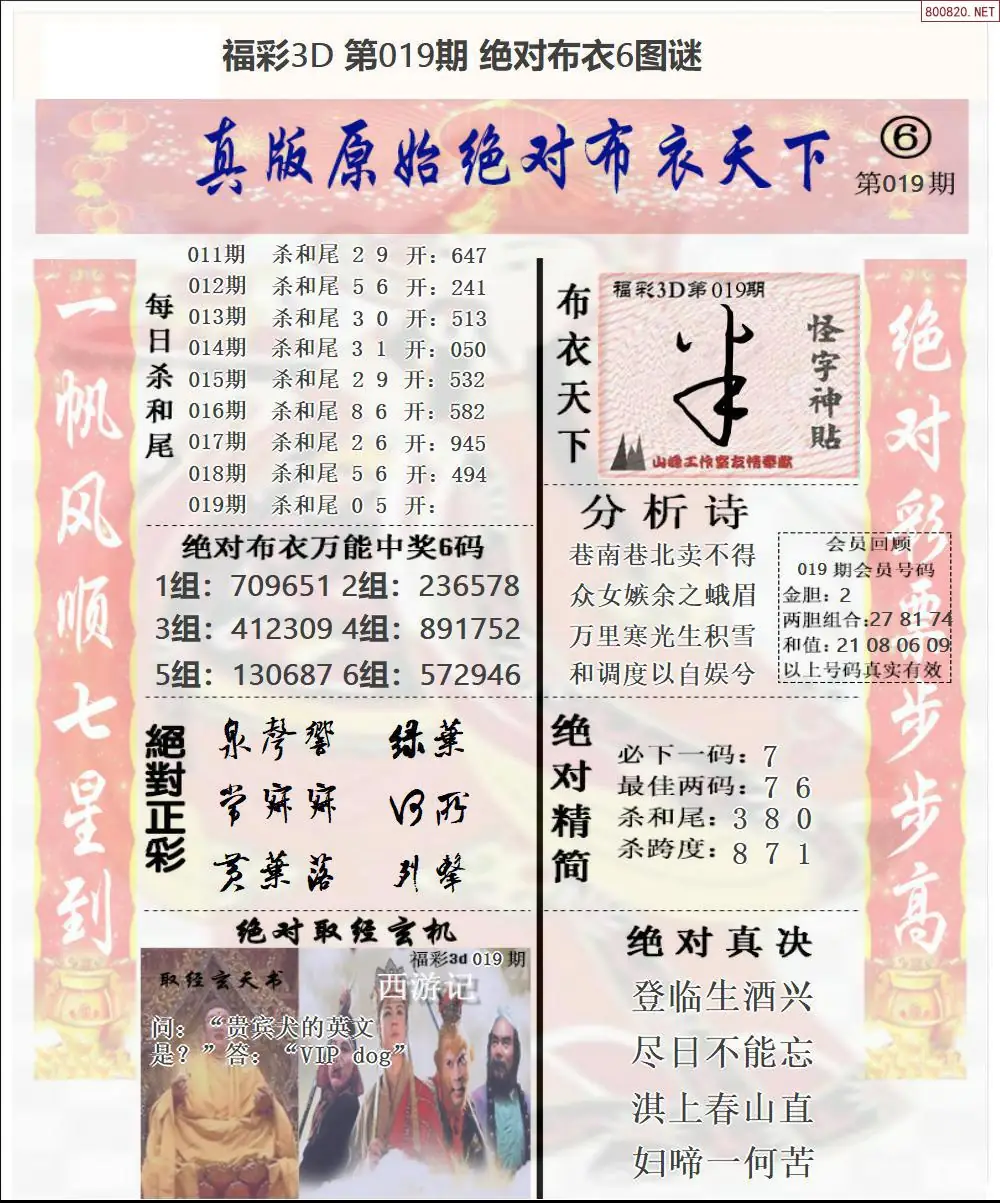 800820.NET
福彩3D 第019期 绝对布衣6图谜
真版原始绝对布衣天下
⑥
第019期
一帆风顺七星到
每日杀和尾
011期 杀和尾 2 9 开：647
012期 杀和尾 5 6 开：241
013期 杀和尾 3 0 开：513
014期 杀和尾 3 1 开：050
015期 杀和尾 2 9 开：532
016期 杀和尾 8 6 开：582
017期 杀和尾 2 6 开：945
018期 杀和尾 5 6 开：494
019期 杀和尾 0 5 开：
绝对布衣万能中奖6码
1组：709651 2组：236578
3组：412309 4组：891752
5组：130687 6组：572946
絕對正彩
泉聲響 绿葉
常寐寐 河所
黄葉落 列擎
绝对取经玄机
福彩3d 019期
取经玄天书
西游记
问：“贵宾犬的英文
是？”答：“VIP dog”
布衣天下
福彩3D第019期
怪字神貼
山峰工作室友情奉献
分析诗
巷南巷北卖不得
众女嫉余之蛾眉
万里寒光生积雪
和调度以自娱兮
会员回顾
019期会员号码
金胆：2
两胆组合:27 81 74
和值：21 08 06 09
以上号码真实有效
绝对精简
必下一码：7
最佳两码：7 6
杀和尾：3 8 0
杀跨度：8 7 1
绝对真决
登临生酒兴
尽日不能忘
淇上春山直
妇啼一何苦
绝对彩票步步高